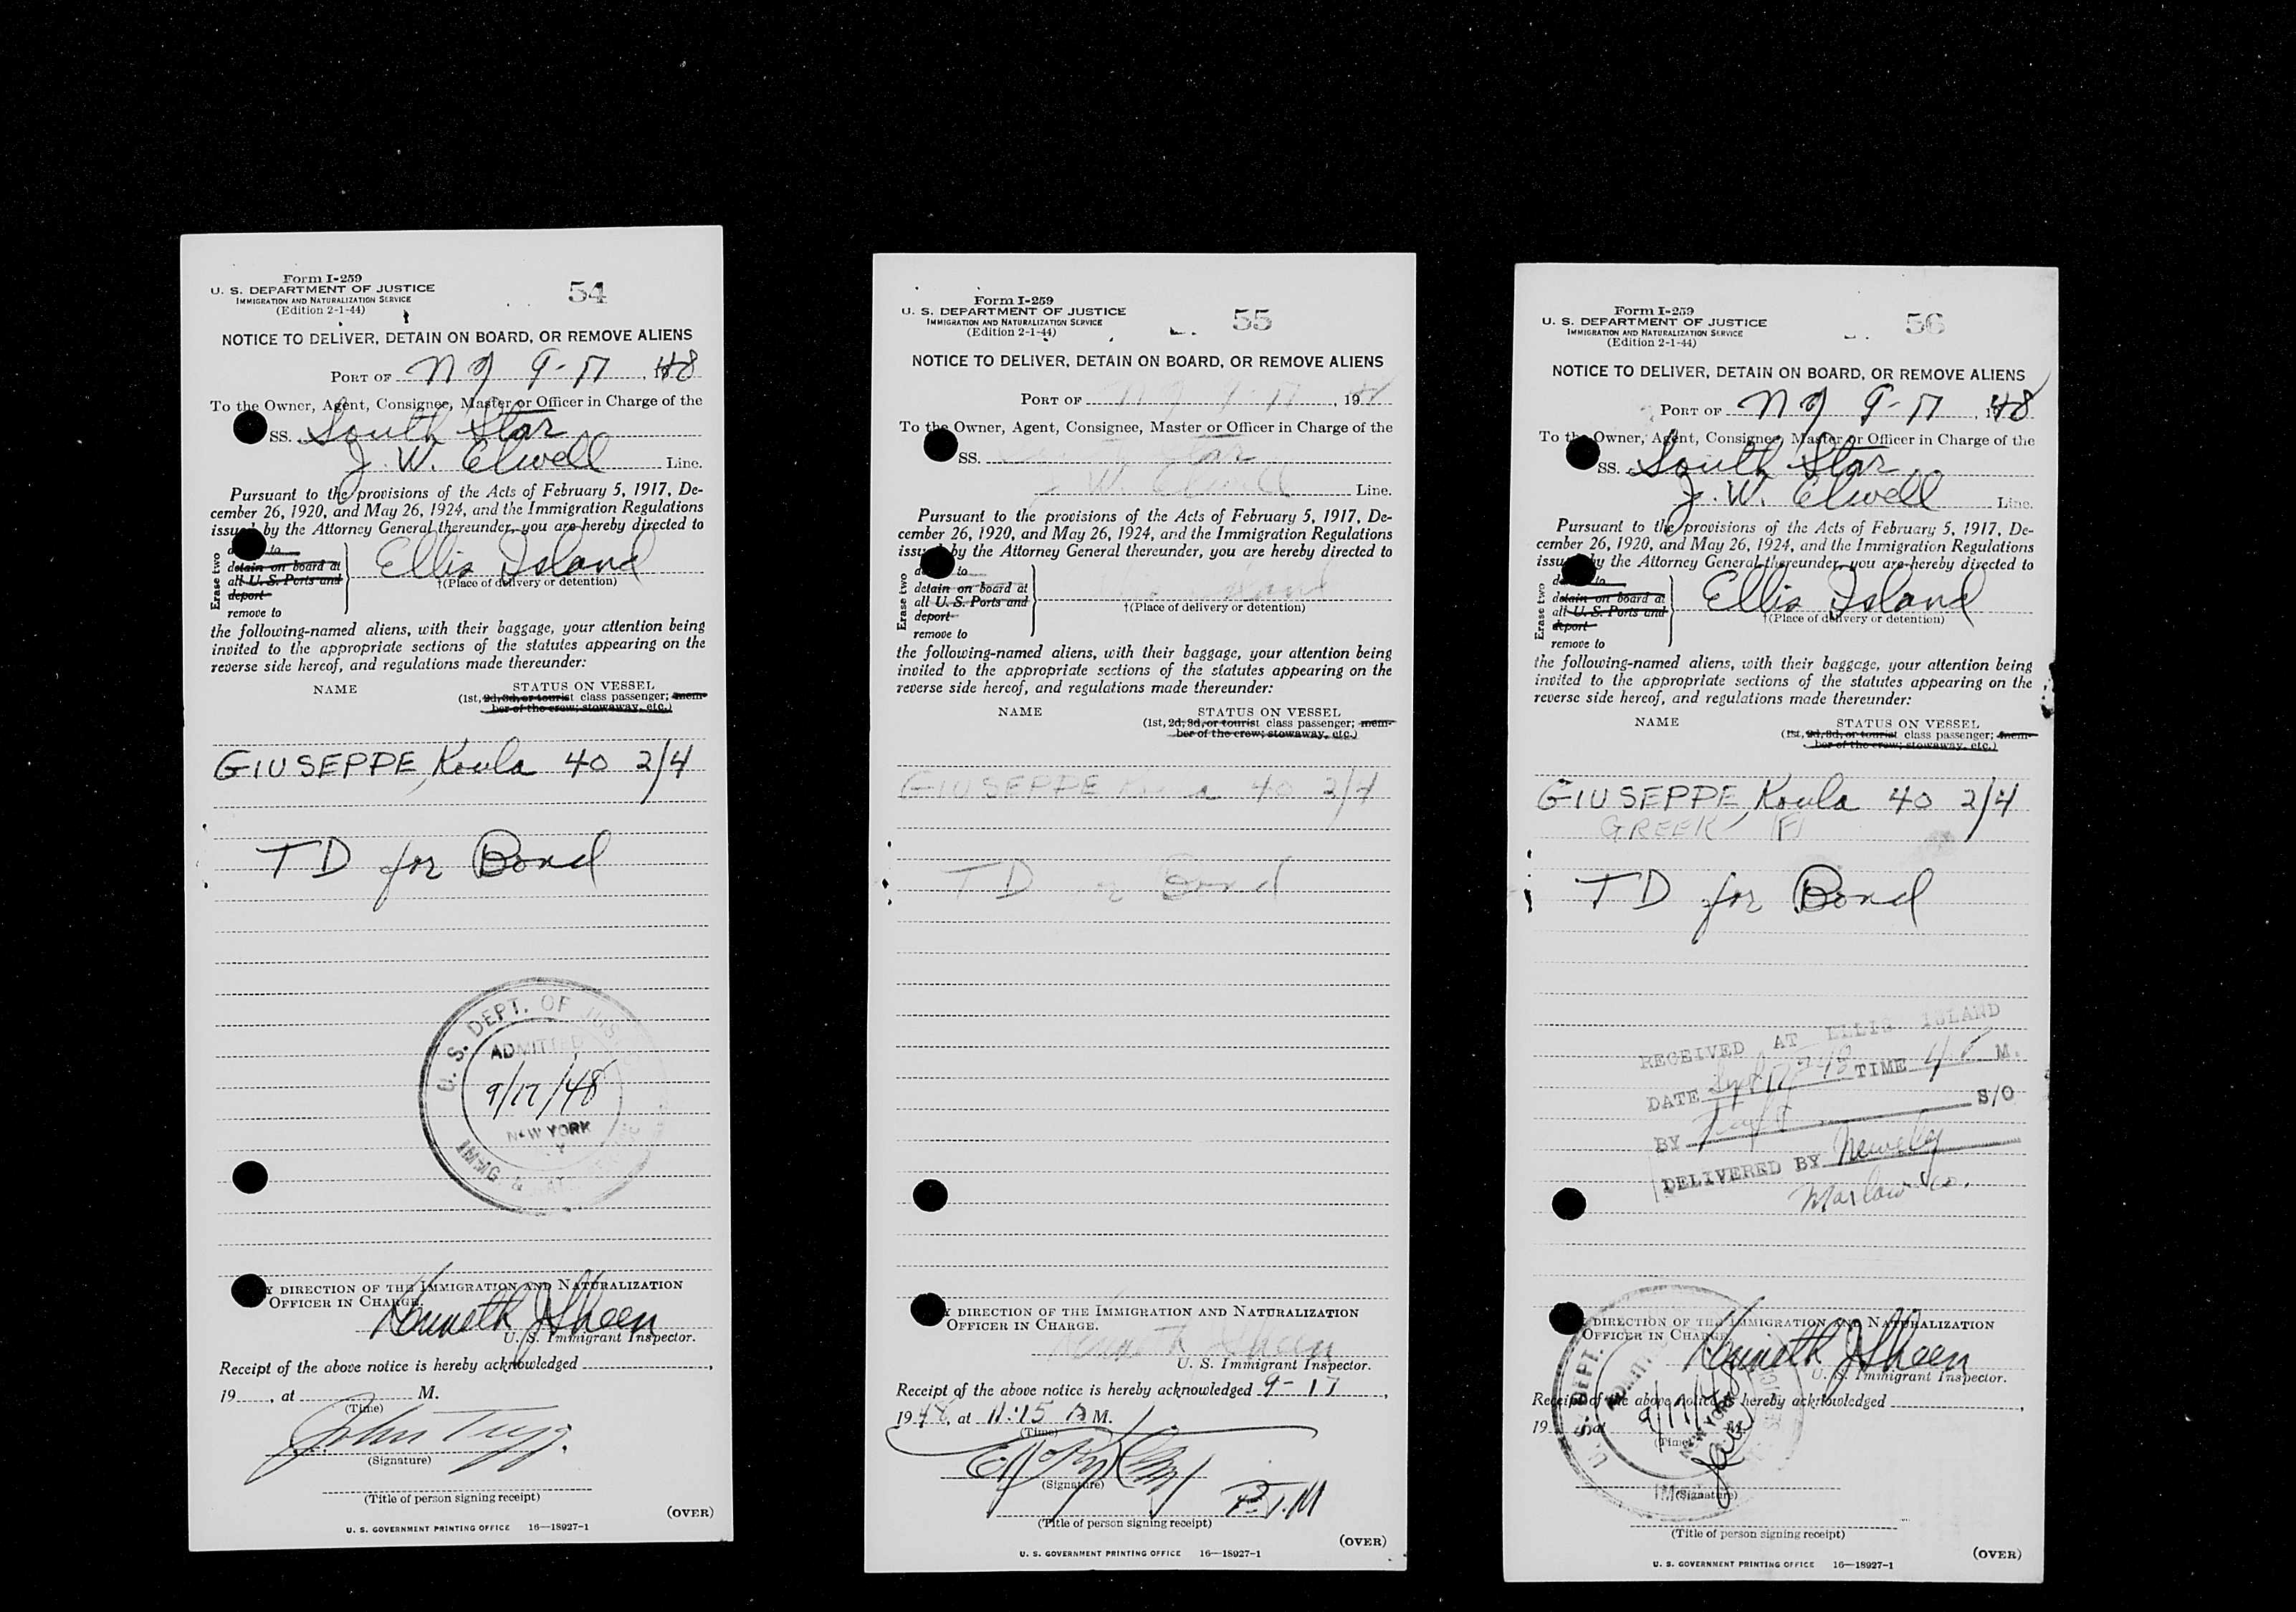 Form I-259
U. S. DEPARTMENT OF JUSTICE
IMMIGRATION AND NATURALIZATION SERVICE
(Edition 2-1-44)
54
NOTICE TO DELIVER, DETAIN ON BOARD, OR REMOVE ALIENS
PORT OF NY 9-17, 1948
To the Owner, Agent, Consignee, Master or Officer in Charge of the
SS. South Star
J. W. Elwell Line.
Pursuant to the provisions of the Acts of February 5, 1917, De-
cember 26, 1920, and May 26, 1924, and the Immigration Regulations
issued by the Attorney General thereunder, you are hereby directed to
Erase two
to
detain on board at
all U. S. Ports and
deport
remove to
Ellis Island
†(Place of delivery or detention)
the following-named aliens, with their baggage, your attention being
invited to the appropriate sections of the statutes appearing on the
reverse side hereof, and regulations made thereunder:
NAME STATUS ON VESSEL
(1st, 2d, 3d, or tourist class passenger; mem-
ber of the crew; stowaway, etc.)
GIUSEPPE, Koula 40 2/4
TD for Bond
U. S. DEPT. OF JUS
ADMITTED
9/17/48
NEW YORK
IMMIG. &
DIRECTION OF THE IMMIGRATION AND NATURALIZATION
OFFICER IN CHARGE.
Kenneth J Sheen
U. S. Immigrant Inspector.
Receipt of the above notice is hereby acknowledged
19 , at M.
(Time)
John Tugg.
(Signature)
(Title of person signing receipt)
(OVER)
U. S. GOVERNMENT PRINTING OFFICE 16—18927-1
Form I-259
U. S. DEPARTMENT OF JUSTICE
IMMIGRATION AND NATURALIZATION SERVICE
(Edition 2-1-44)
55
NOTICE TO DELIVER, DETAIN ON BOARD, OR REMOVE ALIENS
PORT OF NY 9-17, 1948
To the Owner, Agent, Consignee, Master or Officer in Charge of the
SS. Star
J. W. Elwell Line.
Pursuant to the provisions of the Acts of February 5, 1917, De-
cember 26, 1920, and May 26, 1924, and the Immigration Regulations
issued by the Attorney General thereunder, you are hereby directed to
Erase two
to
detain on board at
all U. S. Ports and
deport
remove to
Island
†(Place of delivery or detention)
the following-named aliens, with their baggage, your attention being
invited to the appropriate sections of the statutes appearing on the
reverse side hereof, and regulations made thereunder:
NAME STATUS ON VESSEL
(1st, 2d, 3d, or tourist class passenger; mem-
ber of the crew; stowaway, etc.)
GIUSEPPE Koula 40 2/4
TD for Bond
DIRECTION OF THE IMMIGRATION AND NATURALIZATION
OFFICER IN CHARGE.
Kenneth J Sheen
U. S. Immigrant Inspector.
Receipt of the above notice is hereby acknowledged 9-17,
1948, at 11:15 A M.
(Time)
(Signature)
P.T.M
(Title of person signing receipt)
(OVER)
U. S. GOVERNMENT PRINTING OFFICE 16—18927-1
Form I-259
U. S. DEPARTMENT OF JUSTICE
IMMIGRATION AND NATURALIZATION SERVICE
(Edition 2-1-44)
56
NOTICE TO DELIVER, DETAIN ON BOARD, OR REMOVE ALIENS
PORT OF NY 9-17, 1948
To the Owner, Agent, Consignee, Master or Officer in Charge of the
SS. South Star
J. W. Elwell Line.
Pursuant to the provisions of the Acts of February 5, 1917, De-
cember 26, 1920, and May 26, 1924, and the Immigration Regulations
issued by the Attorney General thereunder, you are hereby directed to
Erase two
to
detain on board at
all U. S. Ports and
deport
remove to
Ellis Island
†(Place of delivery or detention)
the following-named aliens, with their baggage, your attention being
invited to the appropriate sections of the statutes appearing on the
reverse side hereof, and regulations made thereunder:
NAME STATUS ON VESSEL
(1st, 2d, 3d, or tourist class passenger; mem-
ber of the crew; stowaway, etc.)
GIUSEPPE, Koula 40 2/4
GREEK (F)
TD for Bond
RECEIVED AT ELLIS ISLAND
DATE Sept 17 - 48 TIME M.
BY S/O
DELIVERED BY
Marlow Co.
DIRECTION OF THE IMMIGRATION AND NATURALIZATION
OFFICER IN CHARGE
Kenneth J Sheen
U. S. Immigrant Inspector.
U. S. DEPT.
9/17/48
NEW YORK
Receipt of the above notice is hereby acknowledged
19 at M.
(Time)
(Signature)
(Title of person signing receipt)
(OVER)
U. S. GOVERNMENT PRINTING OFFICE 16—18927-1